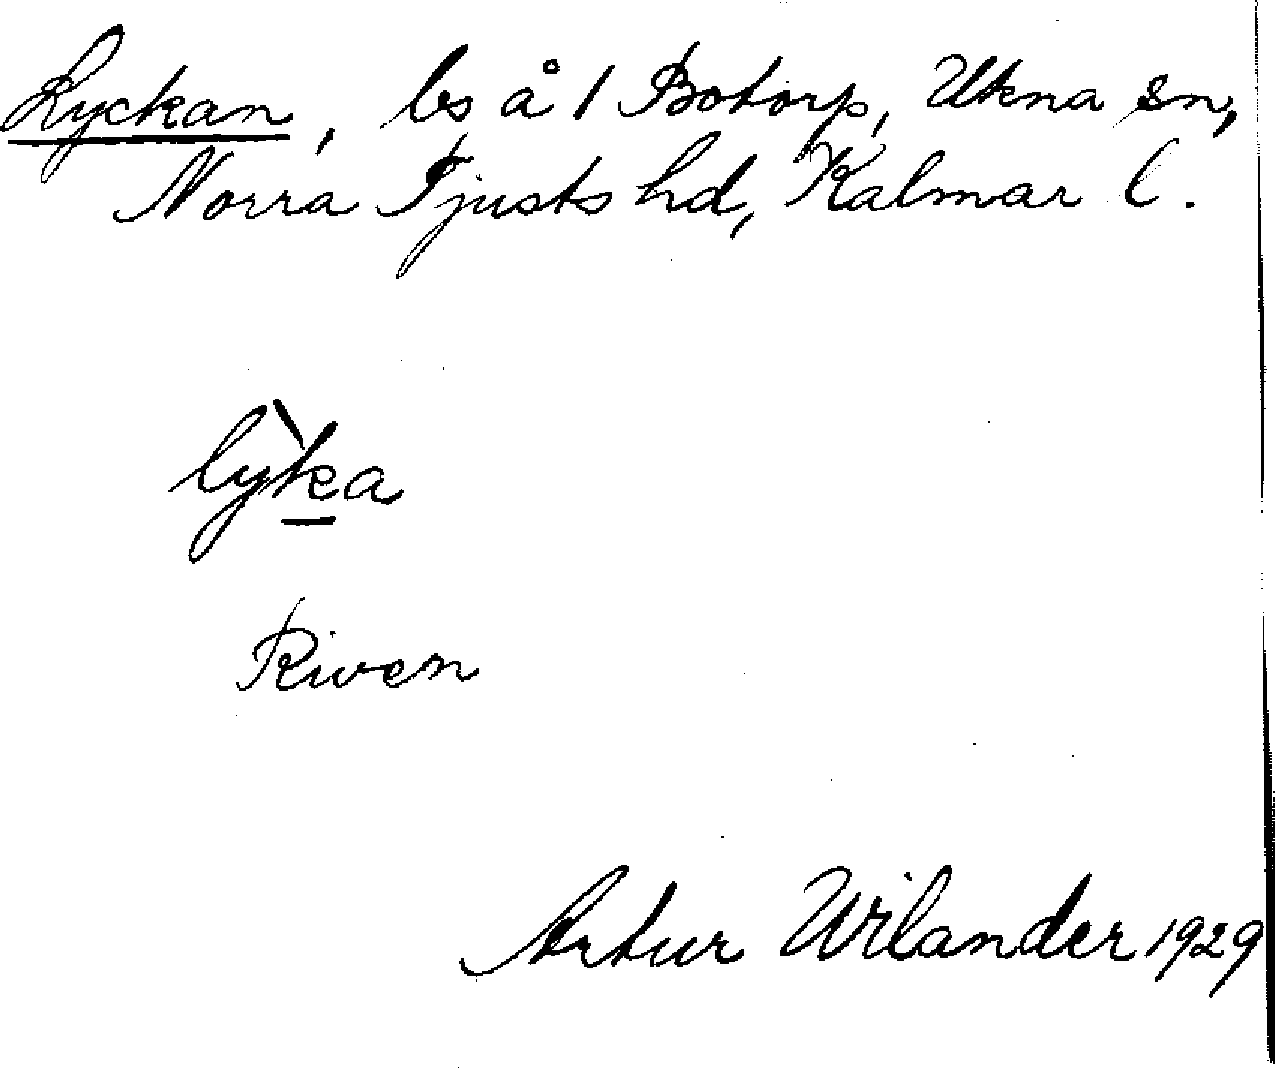 Lyckan, ls å 1 Botorp, Ukna sn,
Norra Tjusts hd, Kalmar l.
lỳka
Riven
Artur Wilander 1929